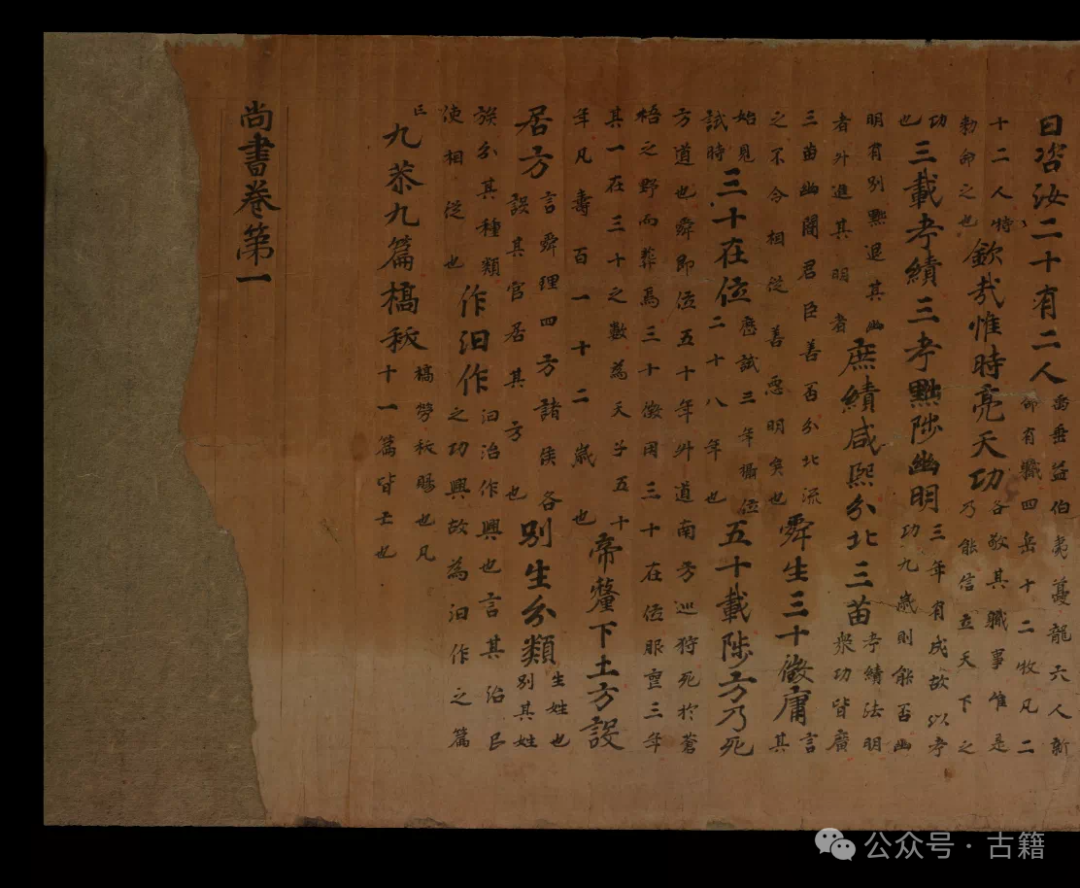 曰咨汝二十有二人禹垂益伯夷夔龍六人新命有職四岳十二牧凡二
十二人特勑命之也欽哉惟時亮天功各敬其職事惟是乃能信立天下之
功也三載考績三考黜陟幽明三年有成故以考功九歲則能否幽
明有別黜退其幽者升進其明者庶績咸熙分北三苗考績法明衆功皆廣
三苗幽闇君臣善否分北流之不令相從善惡明矣也舜生三十徵庸言其
始見試時三十在位歷試三年攝位二十八年也五十載陟方乃死
方道也舜即位五十年升道南方巡狩死於蒼梧之野而葬焉三十徵用三十在位服喪三年
其一在三十之數為天子五十年凡壽百一十二歲也帝釐下土方設
居方言舜理四方諸侯各設其官居其方也別生分類生姓也別其姓
族分其種類使相從也作汩作汩治作興也言其治民之功興故為汩作之篇
亡九共九篇槁飫槁勞飫賜也凡十一篇皆亡也
尚書卷第一
公众号·古籍